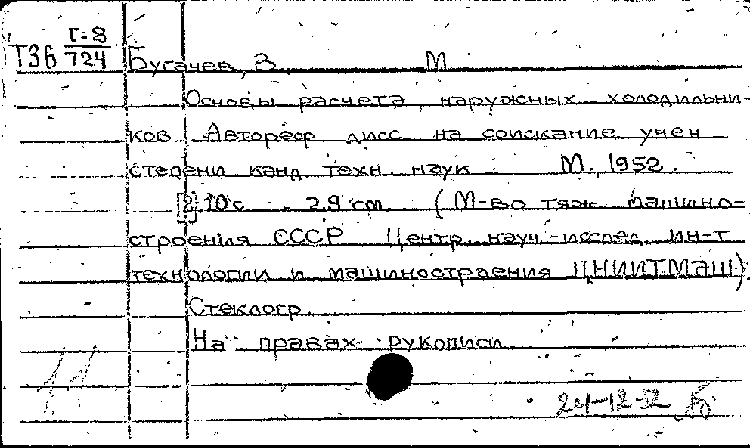 Г-8
Т36 724 Бугачев, В. М.
Основы расчета наружных холодильни-
ков. Автореф. дисс. на соискание учен.
степени канд. техн. наук. М., 1952.
[2], 10 с. 29 см. (М-во тяж. машино-
строения СССР. Центр. науч.-исслед. ин-т
технологии и машиностроения ЦНИИТМАШ).
Стеклогр.
На правах рукописи.
24-12-52